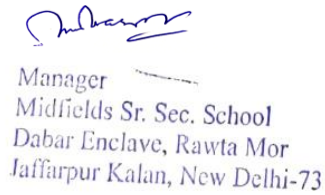 Manager
Midfields Sr. Sec. School
Dabar Enclave, Rawta Mor
Jaffarpur Kalan, New Delhi-73